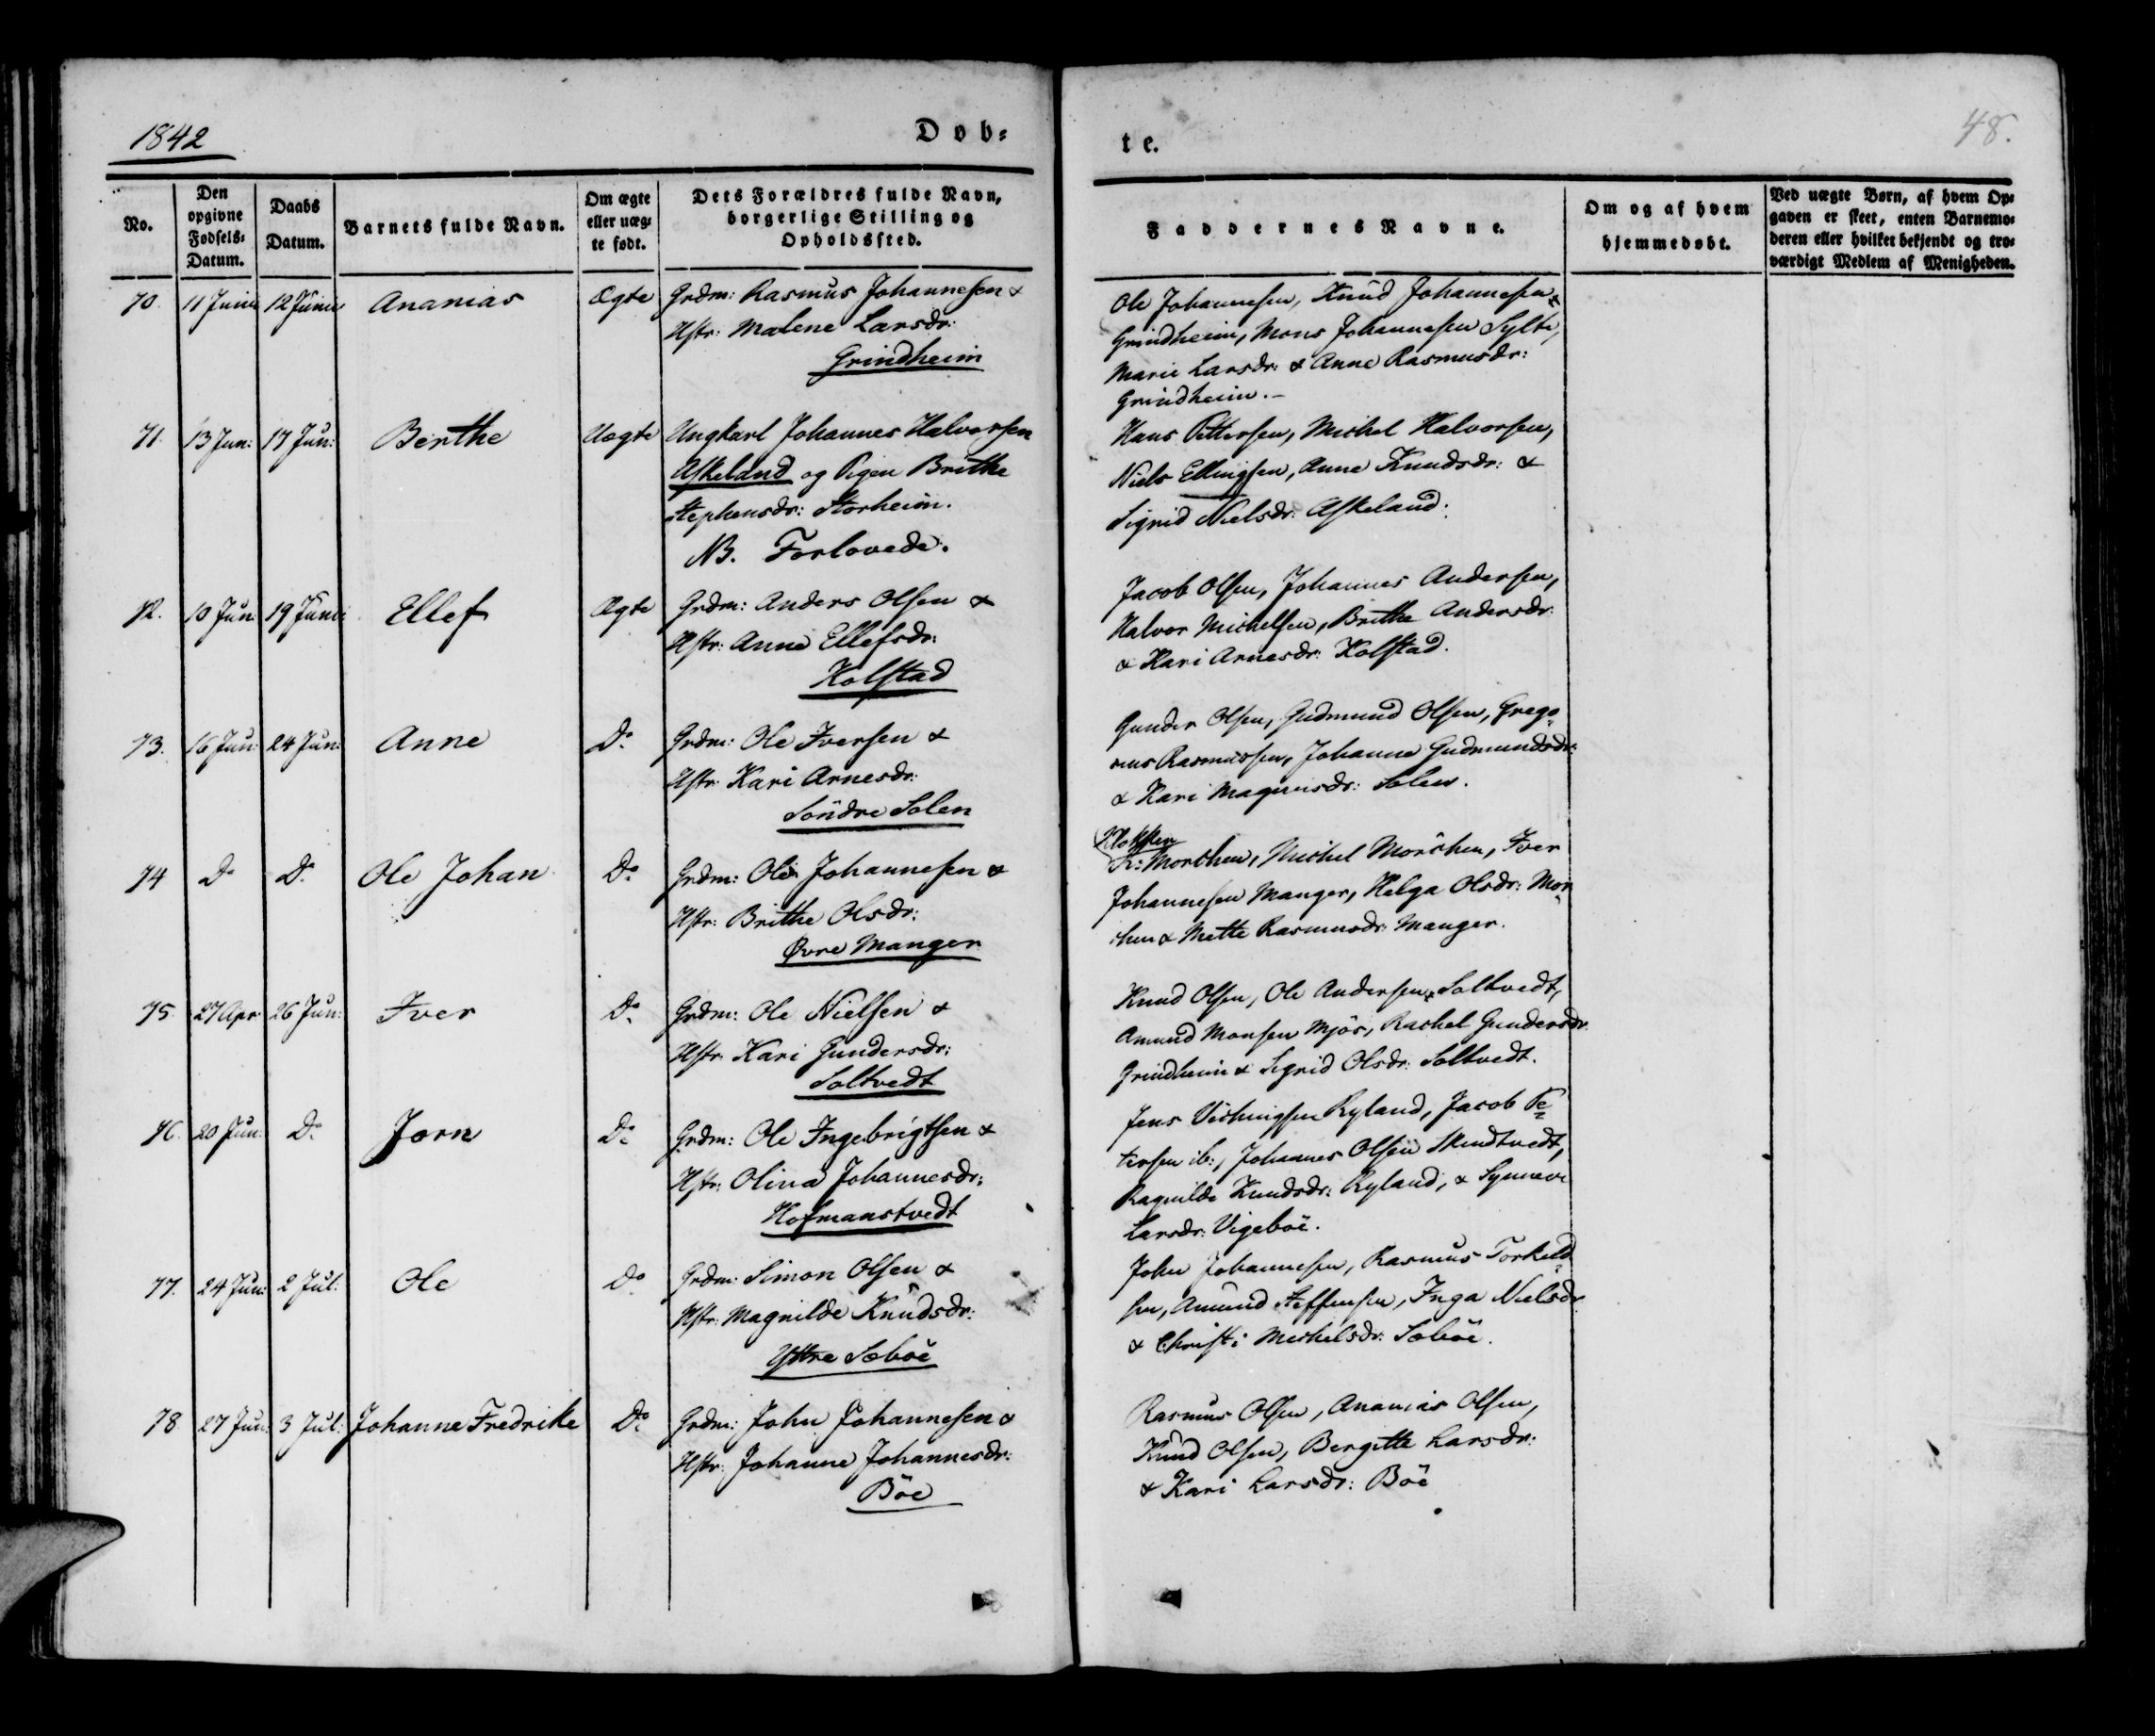 1842
Døb-
te.
48.
No.
Den
opgivne
Fødsels-
Datum.
Daabs
Datum.
Barnets fulde Navn.
Om ægte
eller uæg-
te født.
Dets Forældres fulde Navn,
borgerlige Stilling og
Opholdssted.
Faddernes Navne.
Om og af hvem
hjemmedøbt.
Ved uægte Børn, af hvem Op-
gaven er skeet, enten Barnemo-
deren eller hvilket bekjendt og tro-
værdigt Medlem af Menigheden.
70. 11 Junii 12 Junii Ananias Ægte Grdm: Rasmus Johannesen &
Hstr: Malene Larsdr:
Grindheim
Ole Johannesen, Knud Johannesen
Grindheim, Mons Johannesen Sylte,
Marie Larsdr: & Anne Rasmusdr:
Grindheim.-
71. 13 Jun: 17 Jun: Berthe Uægte Ungkarl Johannes Halvorsen
Askeland og Pigen Brithe
Stephensdr: Storheim.
NB. Forlovede.
Hans Pettersen, Michel Halvorsen,
Niels Ellingsen, Anne Knudsdr: &
Sigrid Nielsdr: Askeland.
72. 10 Jun: 19 Junii Ellef Ægte Grdm: Anders Olsen &
Hstr: Anne Ellefsdr:
Kolstad
Jacob Olsen, Johannes Andersen,
Halvor Michelsen, Brithe Andersdr:
& Kari Arnesdr: Kolstad.
73. 16 Jun: 24 Jun: Anne Do. Grdm: Ole Iversen &
Hstr: Kari Arnesdr:
Söndre Solen
Gunder Olsen, Gudmund Olsen, Grego-
rius Rasmussen, Johanne Gudmundsdr:
& Kari Magnusdr: Solen.
74 Do Do. Ole Johan Do. Grdm: Ole Johannesen &
Hstr: Brithe Olsdr:
Øvre Manger
Klokker
Morchen, Michel Morchen, Iver
Johannesen Manger, Helga Olsdr: Mor-
chen & Mette Rasmusdr: Manger.
75. 27 Apr: 26 Jun: Iver Do. Grdm: Ole Nielsen &
Hstr: Kari Gundersdr:
Soltvedt
Knud Olsen, Ole Andersen Soltvedt,
Amund Monsen Mjös, Rachel Gundersdr:
Grindheim & Sigrid Olsdr: Soltvedt.
76. 20 Jun: Do. Jorn Do. Grdm: Ole Ingebrigtsen &
Hstr: Olina Johannesdr:
Hofmanstvedt
Jens Ryland, Jacob Pe-
tersen ib:, Johannes Olsen
Ragnilde Knudsdr: Ryland, & Synneve
Larsdr: Vigeböe.
77. 24 Jun: 2 Jul: Ole Do Grdm: Simon Olsen &
Hstr: Magnilde Knudsdr:
Yttre Soböe
John Johannesen, Rasmus Torkeld-
sen, Amund Steffensen, Inga Nielsdr
& Christi Michelsdr: Soböe.
78. 27 Jun: 3 Jul: Johanne Fredrikke Do. Grdm: John Johannesen &
Hstr: Johanne Johannesdr:
Böe
Rasmus Olsen, Ananias Olsen,
Knud Olsen, Bergitte Larsdr:
& Kari Larsdr: Böe